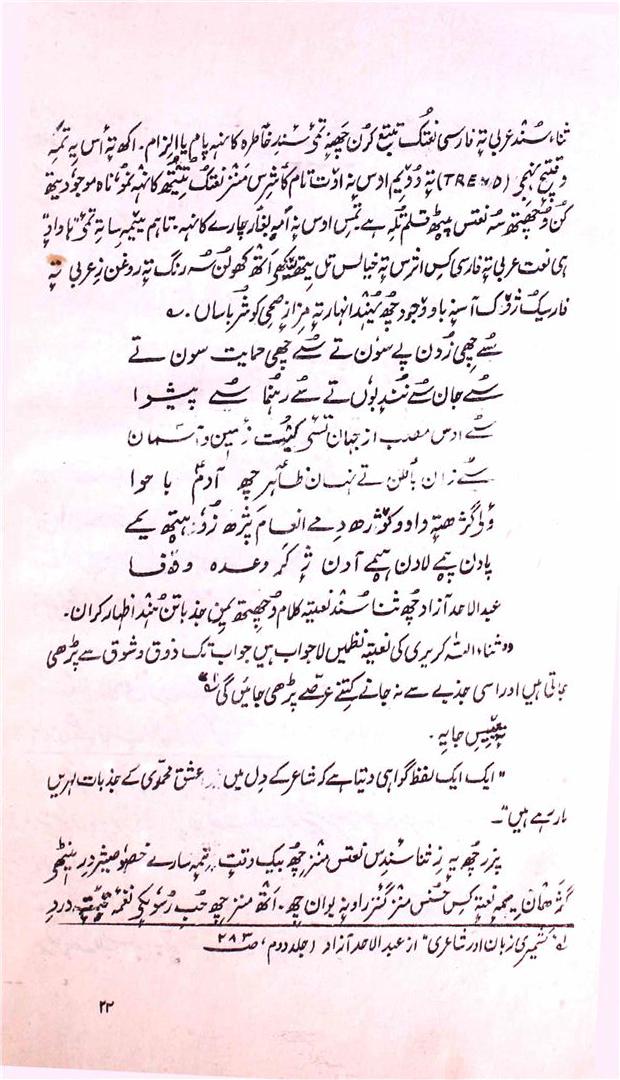 ثناء سُند عربی تہٕ فارسی نعتُک تتبع کرُن چَھنہٕ تِمی سٕندِ خٲطرٕہ کانہہ پام یا اِلزام۔ اکھ تہٕ أس یہ تمہ
وقتچ نہجی (TREND) تہٕ دۄیم اوس نہٕ ادٕت تام کأشرِس منٛز نعتُک تیُتھ کانہہ نموٗناہ موجوٗد یتھ
کُن وُچھتھ سُہ نعتس پیٹھ قلم تُلہِ ہے۔ تَمس اوس نہٕ أمہِ بغٲر چارٕے کانہہ۔ تاہم ییٚمہِ سات تٔمی
ہی نعت عربی تہٕ فارسی کِس اثرس تہٕ خیالس تل بیٚتھ لیٚکھی أتھ کھوٚن سُہ رنگ تہٕ روغن زِ عربی تہٕ
فارسیک آسنہٕ باوجوٗد چُھ یُہند اظہار تہٕ مزاز صحی کوشُر باسان۔ ؎
سُے چھی زوٗن پے سوٗن تے سُے چھی حمایت سون تے
سُے جان سُے تے سُے رہنما سُے پیشوا
سُے اوس مطلب از جہان زمین و آسمان
سُے زان باطن تے نہان ظٲہر چھ آدمؑ با حوا
وٕلی گژھتہٕ داوو کوٚژرھ دِمے انعام پٔژرھ یمے
پادن پیٚمے لادن ہیٚمے آدن ژٕ کر وعدہ وفا
عبدالاحد آزاد چُھ ثنا سُند نعتیہ کلام وُچھتھ یِمن جذباتن ہُند اظہار کران۔
”ثناء اللہ کریری کی نعتیہ نظمیں لاجواب ہیں جواب تک ذوق و شوق سے پڑھی
جاتی ہیں اور اسی جذبے سے نہ جانے کتنے عرصے پڑھی جائیں گی“ؔ۱
بییِس جایہِ۔
”ایک ایک لفظ گواہی دیتا ہے کہ شاعر کے دِل میں عشق محمدؐی کے جذبات لہریں
مار رہے ہیں“۔
پزر چُھ یہ زِ ثنا سٕندِس نعتس منٛز چھِ بیک وقت تِمہٕ سارٕے خصوٗصیژ در ینٹھی
گژھان یمہٕ نعتیہ کِس حُسنس منٛز گنٛزراونہٕ یوان چھِ۔ أتھ منٛز چھ حُبِ رسوٗلؐکی نغمہٕ تہٕ درد
؎۱ ”کشمیری زبان اور شاعری“ از عبدالاحد آزاد (جلد دوم، صـ ۲۸۳
۲۲